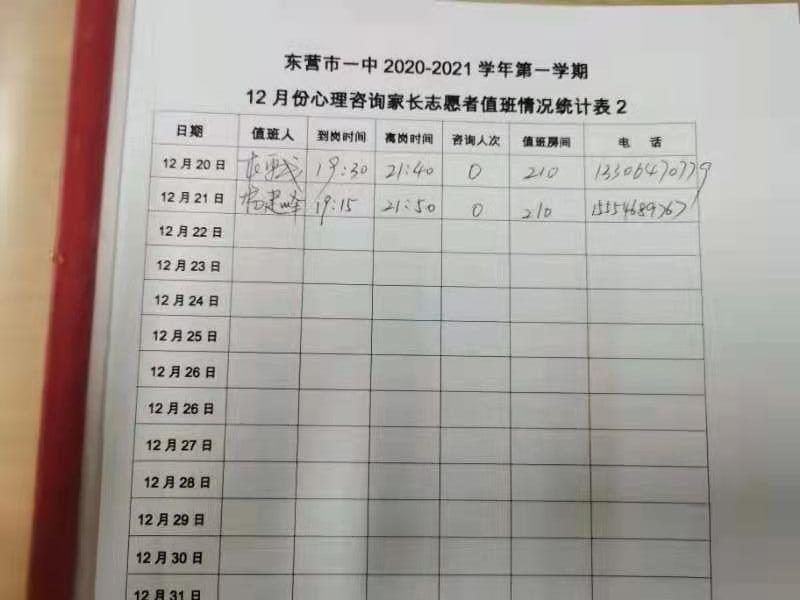 东营市一中 2020-2021 学年第一学期
12 月份心理咨询家长志愿者值班情况统计表 2
日期 值班人 到岗时间 离岗时间 咨询人次 值班房间 电 话
12 月 20 日 19:30 21:40 0 210 13306470779
12 月 21 日 杨建峰 19:15 21:50 0 210 15554689767
12 月 22 日
12 月 23 日
12 月 24 日
12 月 25 日
12 月 26 日
12 月 26 日
12 月 27 日
12 月 28 日
12 月 29 日
12 月 30 日
12 月 31 日